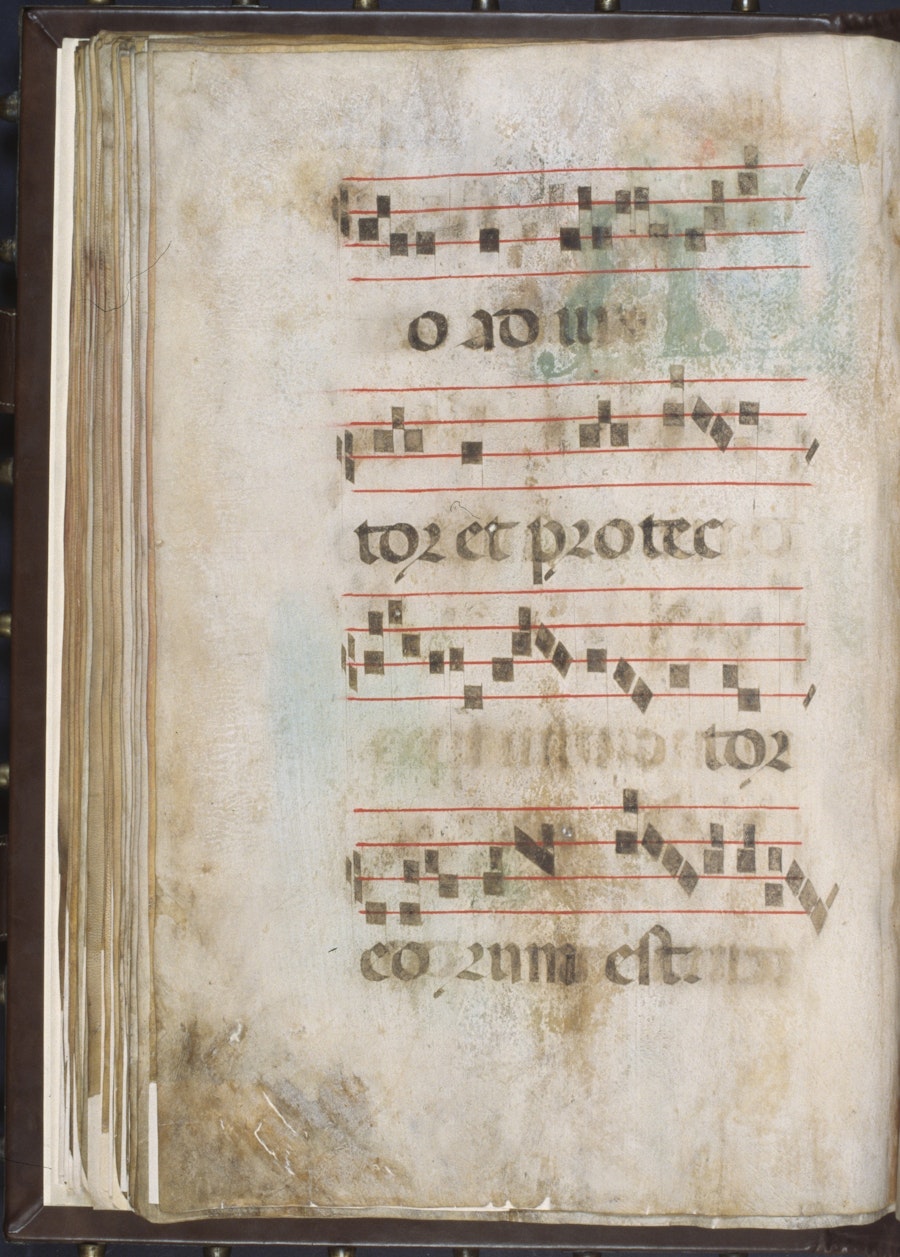 o ad iu
tor et protec
tor
eo rum est.